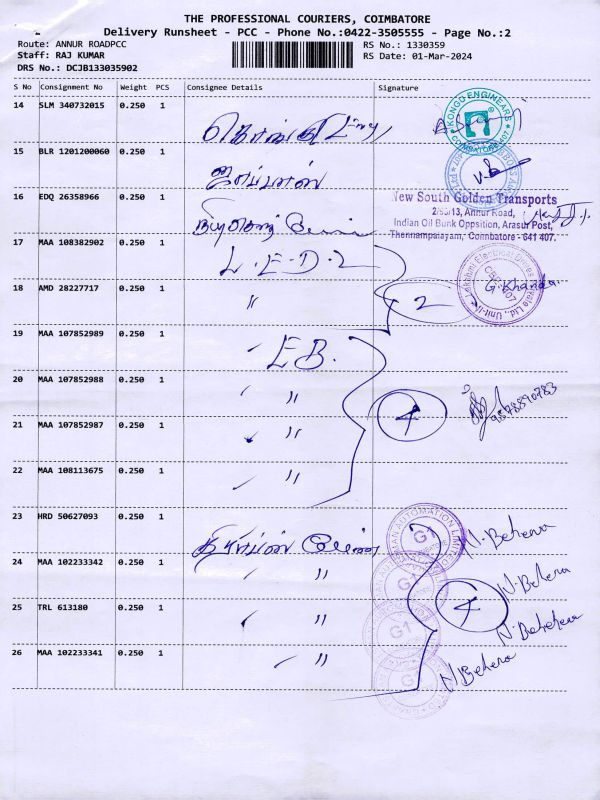 THE PROFESSIONAL COURIERS, COIMBATORE
Delivery Runsheet - PCC - Phone No.:0422-3505555 - Page No.:2
Route: ANNUR ROADPCC
RS No.: 1330359
Staff: RAJ KUMAR
RS Date: 01-Mar-2024
DRS No.: DCJB133035902
S No Consignment No Weight PCS Consignee Details Signature
14 SLM 340732015 0.250 1
KONGU ENGINEARS
COIMBATORE-407
15 BLR 1201200060 0.250 1
16 EDQ 26358966 0.250 1
New South Golden Transports
2/55/13, Annur Road,
Indian Oil Bunk Opposition, Arasur Post,
Thennampalayam, Coimbatore - 641 407.
17 MAA 108382902 0.250 1 L.E.D-2
18 AMD 28227717 0.250 1 " 2 G Khanda
19 MAA 107852989 0.250 1 EB.
20 MAA 107852988 0.250 1 " 4 9578890783
21 MAA 107852987 0.250 1 "
22 MAA 108113675 0.250 1 "
23 HRD 50627093 0.250 1 N. Behera
24 MAA 102233342 0.250 1 " N. Behera
25 TRL 613180 0.250 1 " 4 N. Behera
26 MAA 102233341 0.250 1 " N Behera
G1
G1
G1